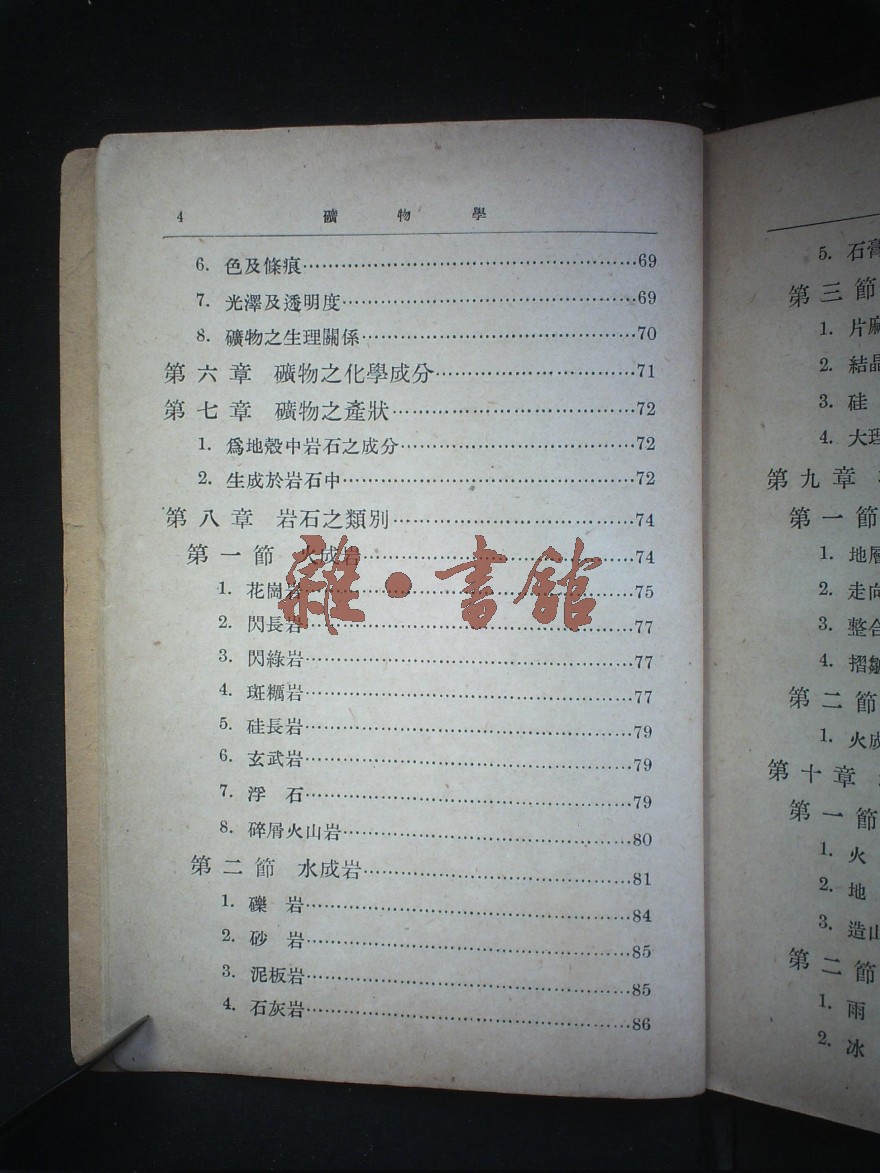 4 礦物學
6. 色及條痕………69
7. 光澤及透明度………69
8. 礦物之生理關係………70
第六章 礦物之化學成分………71
第七章 礦物之產狀………72
1. 爲地殼中岩石之成分………72
2. 生成於岩石中………72
第八章 岩石之類別………74
第一節 火成岩………74
1. 花崗岩………75
2. 閃長岩………77
3. 閃綠岩………77
4. 斑糲岩………77
5. 硅長岩………79
6. 玄武岩………79
7. 浮石………79
8. 碎屑火山岩………80
第二節 水成岩………81
1. 礫岩………84
2. 砂岩………85
3. 泥板岩………85
4. 石灰岩………86
雜·書館
5. 石膏
第三節
1. 片麻
2. 結晶
3. 硅
4. 大理
第九章
第一節
1. 地層
2. 走向
3. 整合
4. 摺皺
第二節
1. 火成
第十章
第一節
1. 火
2. 地
3. 造山
第二節
1. 雨
2. 冰